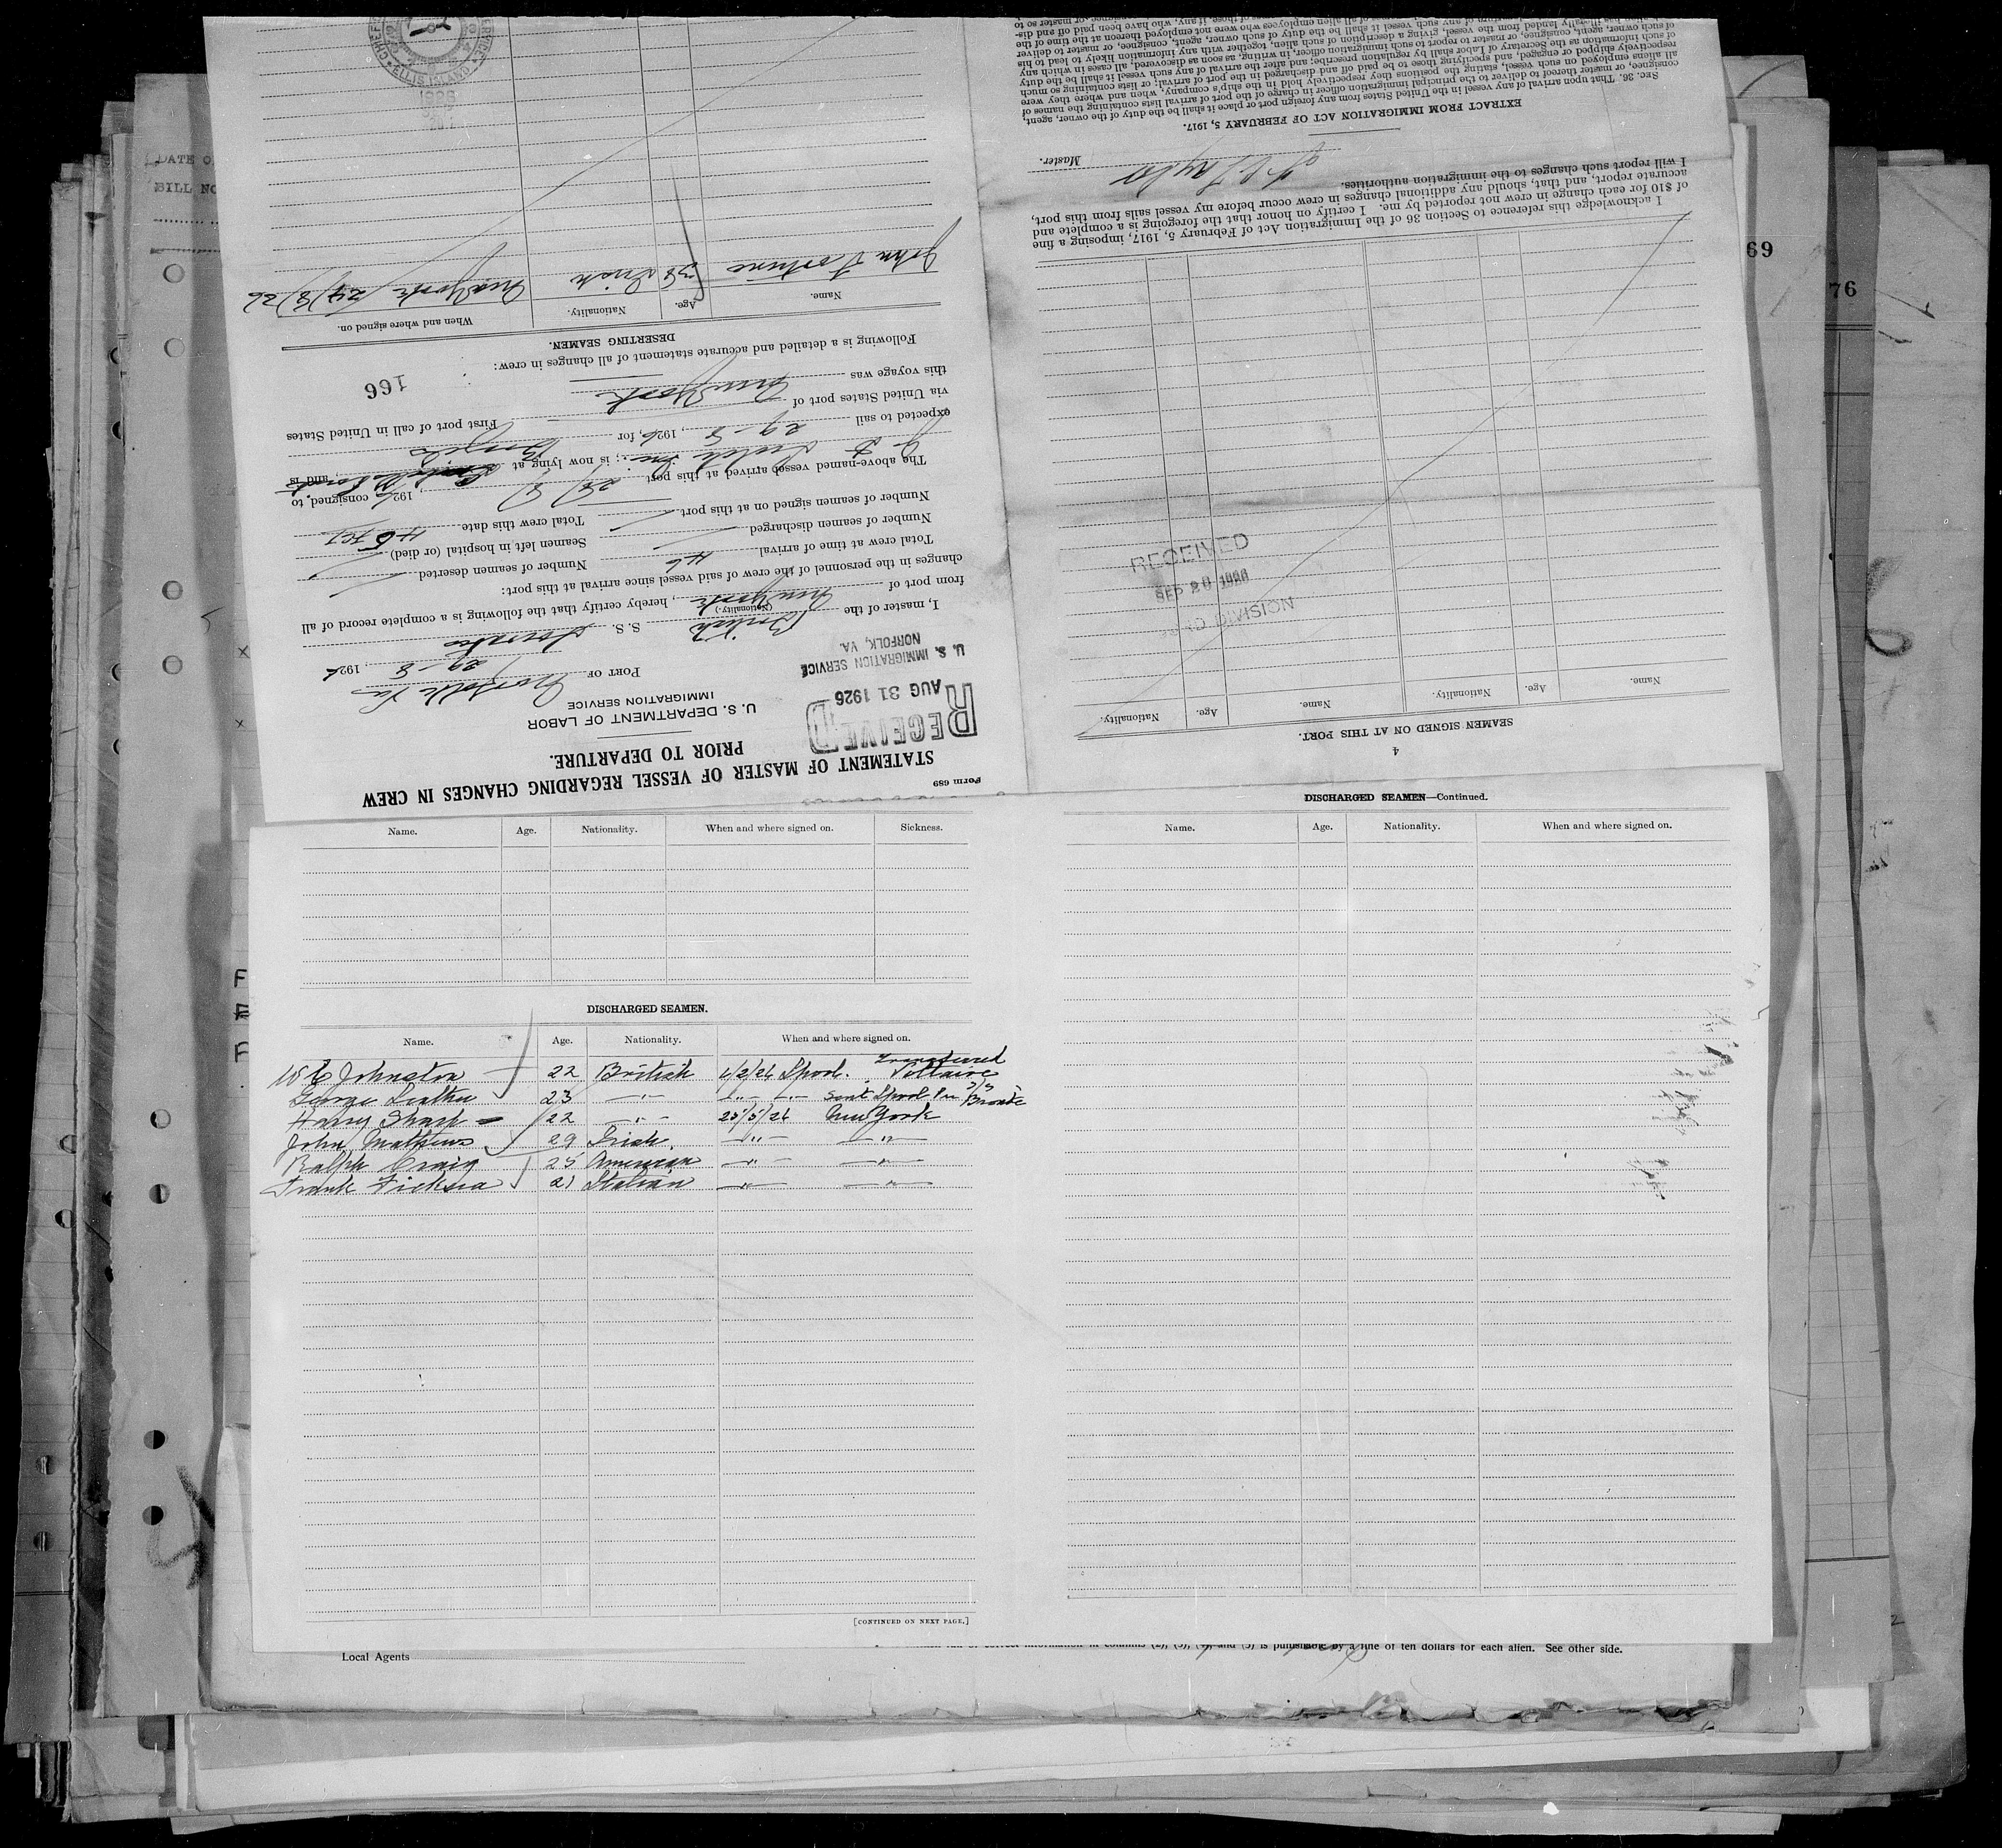 Form 689
STATEMENT OF MASTER OF VESSEL REGARDING CHANGES IN CREW
PRIOR TO DEPARTURE.
RECEIVED
AUG 31 1926
U. S. IMMIGRATION SERVICE
NORFOLK, VA.
U. S. DEPARTMENT OF LABOR
IMMIGRATION SERVICE
PORT OF Norfolk Va 29-8, 1926
I, master of the British S. S.
(Nationality.)
from port of New York, hereby certify that the following is a complete record of all
changes in the personnel of the crew of said vessel since arrival at this port:
Total crew at time of arrival 46 Number of seamen deserted
Number of seamen discharged Seamen left in hospital (or died)
Number of seamen signed on at this port Total crew this date
The above-named vessel arrived at this port 1926 consigned to
; is now lying at , and is
expected to sail 29-8, 1926, for Brazil First port of call in United States
via United States port of
this voyage was New York
166
Following is a detailed and accurate statement of all changes in crew:
DESERTING SEAMEN.
Name. Age. Nationality. When and where signed on.
John Fortune 36 Irish New York 24/8/26
CHIEF
ELLIS ISLAND
1926
4
SEAMEN SIGNED ON AT THIS PORT.
Name. Age. Nationality. Name. Age. Nationality.
RECEIVED
SEP 20 1926
DIVISION
I acknowledge this reference to Section 36 of the Immigration Act of February 5, 1917, imposing a fine
of $10 for each change in crew not reported by me. I certify on honor that the foregoing is a complete and
accurate report, and that, should any additional changes in crew occur before my vessel sails from this port,
I will report such changes to the immigration authorities.
Master.
EXTRACT FROM IMMIGRATION ACT OF FEBRUARY 5, 1917.
SEC. 36. That upon arrival of any vessel in the United States from any foreign port or place it shall be the duty of the owner, agent,
consignee, or master thereof to deliver to the principal immigration officer in charge of the port of arrival lists containing the names of
all aliens employed on such vessel, stating the positions they respectively hold in the ship's company, when and where they were
respectively shipped or engaged, and specifying those to be paid off and discharged in the port of arrival; or lists containing so much
of such information as the Secretary of Labor shall by regulation prescribe; and after the arrival of any such vessel it shall be the duty
of such owner, agent, consignee, or master to report to such immigration officer, in writing, as soon as discovered, all cases in which any
alien has illegally landed from the vessel, giving a description of such alien, together with any information likely to lead to his
DATE O
BILL NO
69
76
F
F
F
Name. Age. Nationality. When and where signed on. Sickness.
DISCHARGED SEAMEN.
Name. Age. Nationality. When and where signed on.
Transferred
W E Johnston 22 British 4/2/26 Lpool. Voltaire
George Leather 23 —"— —"— —"— sent Lpool Per S/S Bronte
Harry Sharp 22 —"— 25/5/26 New York
John Mathews 29 Irish —"— —"—
Ralph Craig 25 American —"— —"—
Frank Ficksia 21 Italian —"— —"—
[CONTINUED ON NEXT PAGE.]
DISCHARGED SEAMEN—Continued.
Name. Age. Nationality. When and where signed on.
correct information in columns (2), (3), (4), and (5) is punishable by a fine of ten dollars for each alien. See other side.
Local Agents